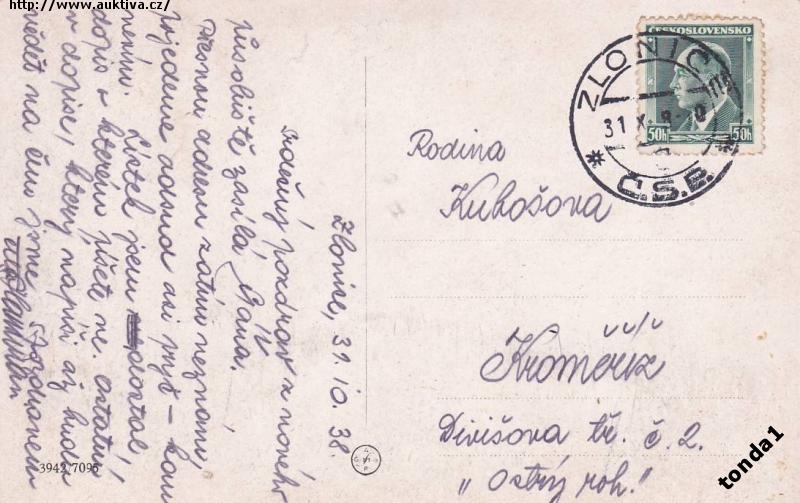 https://www.auktiva.cz/
Zlonice, 31.10.38.
Srdečný pozdrav z nového
působiště zasílá Gáňa.
Přesnou adresu zatím neznám,
pojedeme odsud asi pryč – kam
nevím. Lístek jsem dostal,
dopis o kterém píšete ne. Ostatní
v dopise, který napíši až budu
vědět na čem jsme. S pozdravem
ČESKOSLOVENSKO
50h 50h
ZLONIC
31 X
Č.S.R.
Rodina
Kubošova
Kroměříž
Divišova tř. č 2.
„Ostrý roh."
3942 7095
tonda1